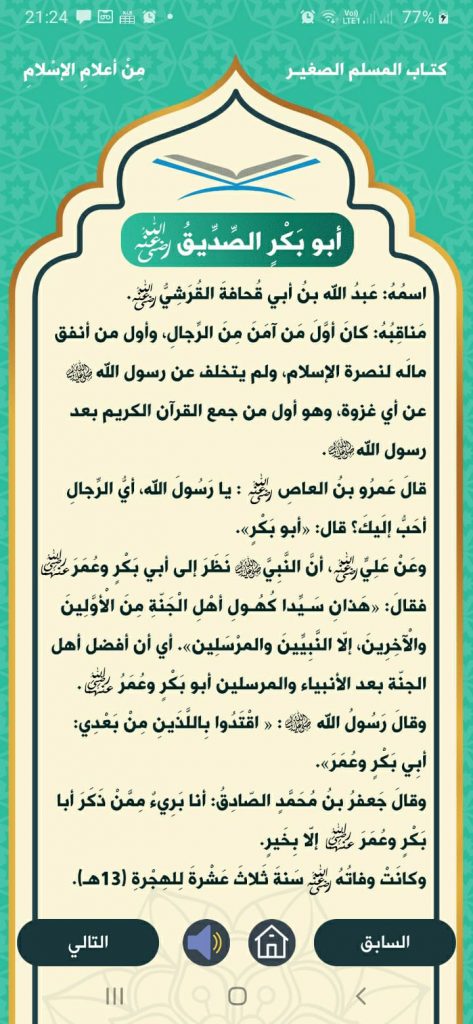 21:24
77%
كتاب المسلم الصغير
مِنْ أعلامِ الإسْلامِ
أبو بَكْرٍ الصِّدِّيقُ ﵁
اسمُهُ: عَبدُ الله بنُ أبي قُحافةَ القُرَشِيُّ ﵁.
مَناقِبُهُ: كانَ أوَّلَ مَن آمَنَ مِنَ الرِّجالِ، وأول من أنفق
مالَه لنصرة الإسلام، ولم يتخلف عن رسول الله ﷺ
عن أي غزوة، وهو أول من جمع القرآن الكريم بعد
رسول الله ﷺ.
قالَ عَمرُو بنُ العاصِ ﵁ : يا رَسُولَ الله، أيُّ الرِّجالِ
أحَبُّ إلَيكَ؟ قال: «أبو بَكْرٍ».
وعَنْ عَلِيٍّ ﵁، أنَّ النَّبِيَّ ﷺ نَظَرَ إلى أبي بَكْرٍ وعُمَرَ ﵄
فقالَ: «هَذانِ سَيِّدا كُهُولِ أهْلِ الْجَنّةِ مِنَ الْأوَّلِينَ
والْآخِرِينَ، إلّا النَّبِيِّينَ والمرْسَلِين». أي أن أفضل أهل
الجنّة بعد الأنبياء والمرسلين أبو بَكْرٍ وعُمَرُ ﵄.
وقالَ رَسُولُ الله ﷺ : « اقْتَدُوا بِاللَّذَينِ مِنْ بَعْدِي:
أبي بَكْرٍ وعُمَرَ».
وقالَ جَعفرُ بنُ مُحَمَّدٍ الصّادِقُ: أنا بَرِيءٌ مِمَّنْ ذَكَرَ أبا
بَكْرٍ وعُمَرَ ﵄ إلّا بِخَيرٍ.
وكانَتْ وفاتُهُ ﵁ سَنَةَ ثَلاثَ عَشْرةَ لِلهِجْرةِ (13هـ).
السابق
التالي